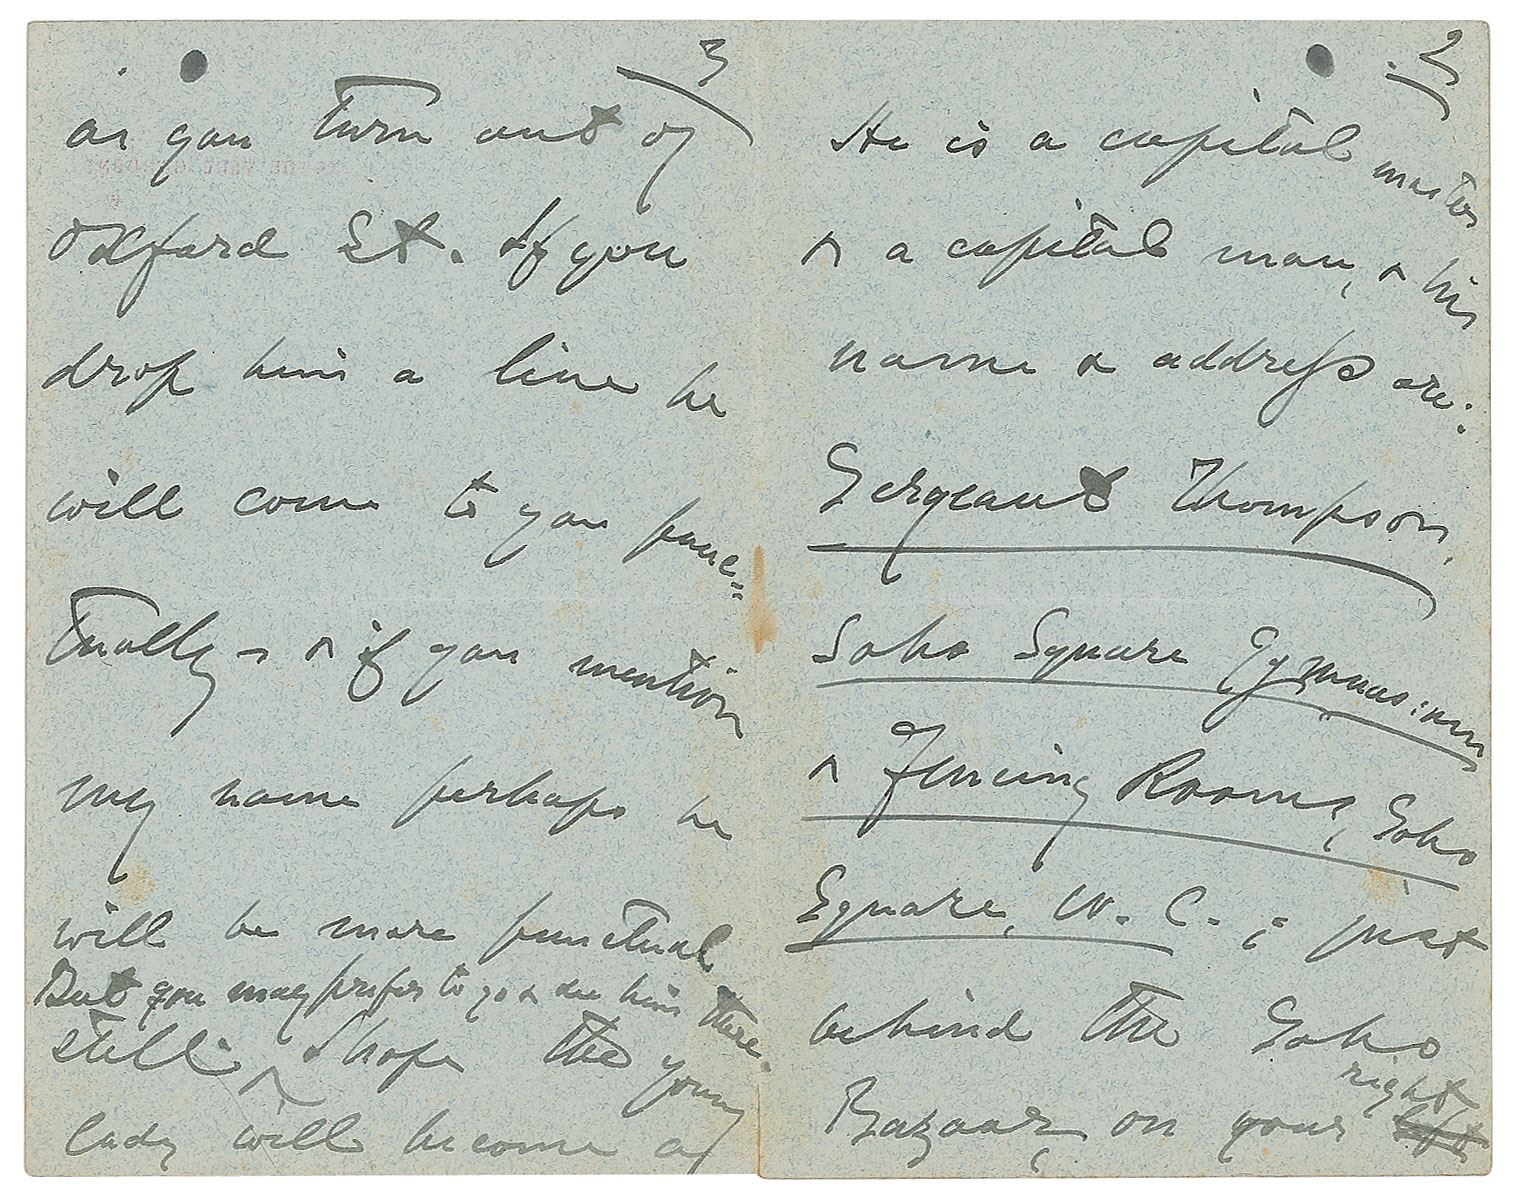 2
He is a capital master
& a capital man, & his
name & address are:
Sergeant Thompson,
Soho Square Gymnasium
& Fencing Rooms, Soho
Square, W. C. ; just
behind the Soho
right
Bazaar, on your left
3
as you turn out of
Oxford St. If you
drop him a line he
will come to you punc=
tually - & if you mention
my name perhaps he
will be more punctual
But you may prefer to go & see him there.
still. I hope the young
lady will become